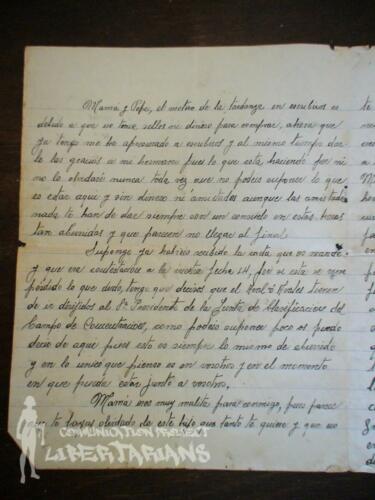 Mamá y Pepe, el motivo de la tardanza en escribiros es
debido a que no tenia sellos ni dinero para comprar, ahora que
ya tengo me he apresurado a escribiros y al mismo tiempo dar
le las gracias a mi hermano pues lo que esta haciendo por mi
no lo olvidaré nunca toda vez que no podeis suponer lo que
es estar aqui y sin dinero ni amistades aunque las amistades
nada te han de dar siempre son un consuelo en estas horas
tan aburridas y que parecen no llegar al final.
Supongo ya habreis recibido la carta que os mande
y que era contestacion a la vuestra fecha 14, por si esta se
pérdido lo que dudo, tengo que deciros que el Aval o Avales tienen
de ir dirijidos al Sr Presidente de la Junta de Clasificacion del
Campo de Concentracion, como podeis suponer poco os puedo
decir de aqui pues esto es siempre lo mismo de aburrido
y en lo unico que pienso es en vosotros y en el momento
en que pueda estar junto a vosotros.
Mamá eres muy malita para conmigo, pues parece
que te hayas olvidado de este hijo que tanto te quiere y que no
te
me
pa
fa
COMMUNICATION PROJECT
LIBERTARIANS